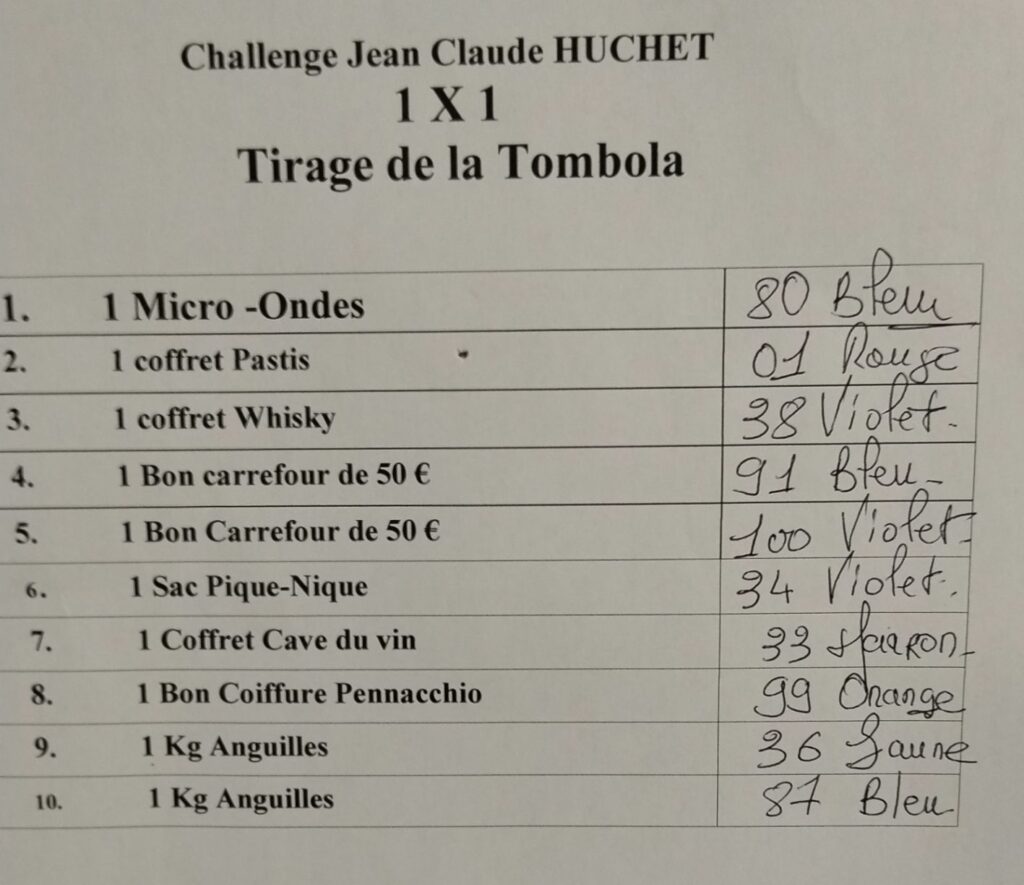 Challenge Jean Claude HUCHET
1 X 1
Tirage de la Tombola
1. 1 Micro -Ondes 80 Bleu
2. 1 coffret Pastis 01 Rouge
3. 1 coffret Whisky 38 Violet.
4. 1 Bon carrefour de 50 € 91 Bleu-
5. 1 Bon Carrefour de 50 € 100 Violet-
6. 1 Sac Pique-Nique 34 Violet.
7. 1 Coffret Cave du vin 33 MaRRON-
8. 1 Bon Coiffure Pennacchio 99 Orange
9. 1 Kg Anguilles 36 Jaune
10. 1 Kg Anguilles 87 Bleu